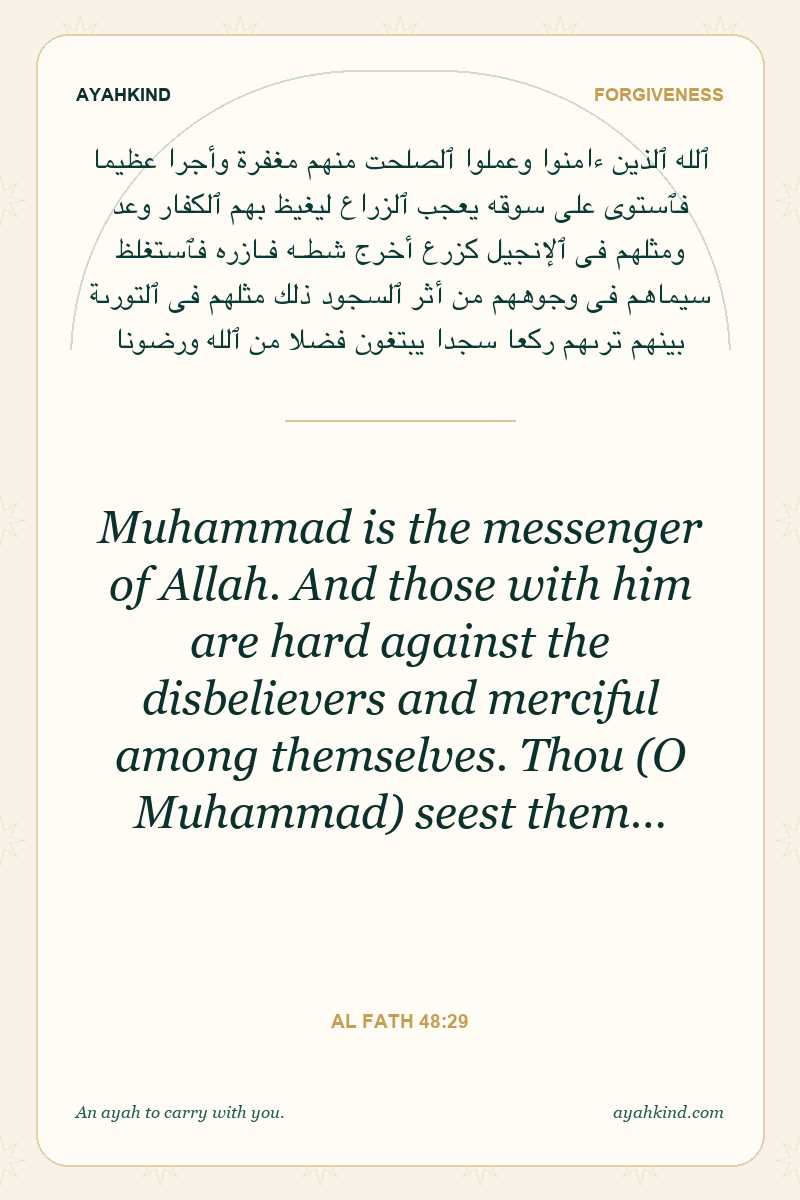 AYAHKIND
FORGIVENESS
ٱلله ٱلذين ءامنوا وعملوا ٱلصلحت منهم مغفرة وأجرا عظيما
فٱستوى على سوقه يعجب ٱلزراع ليغيظ بهم ٱلكفار وعد
ومثلهم فى ٱلإنجيل كزرع أخرج شطـه فـازره فٱستغلظ
سيماهم فى وجوههم من أثر ٱلسجود ذلك مثلهم فى ٱلتورىة
بينهم ترىهم ركعا سجدا يبتغون فضلا من ٱلله ورضونا
Muhammad is the messenger
of Allah. And those with him
are hard against the
disbelievers and merciful
among themselves. Thou (O
Muhammad) seest them...
AL FATH 48:29
An ayah to carry with you.
ayahkind.com